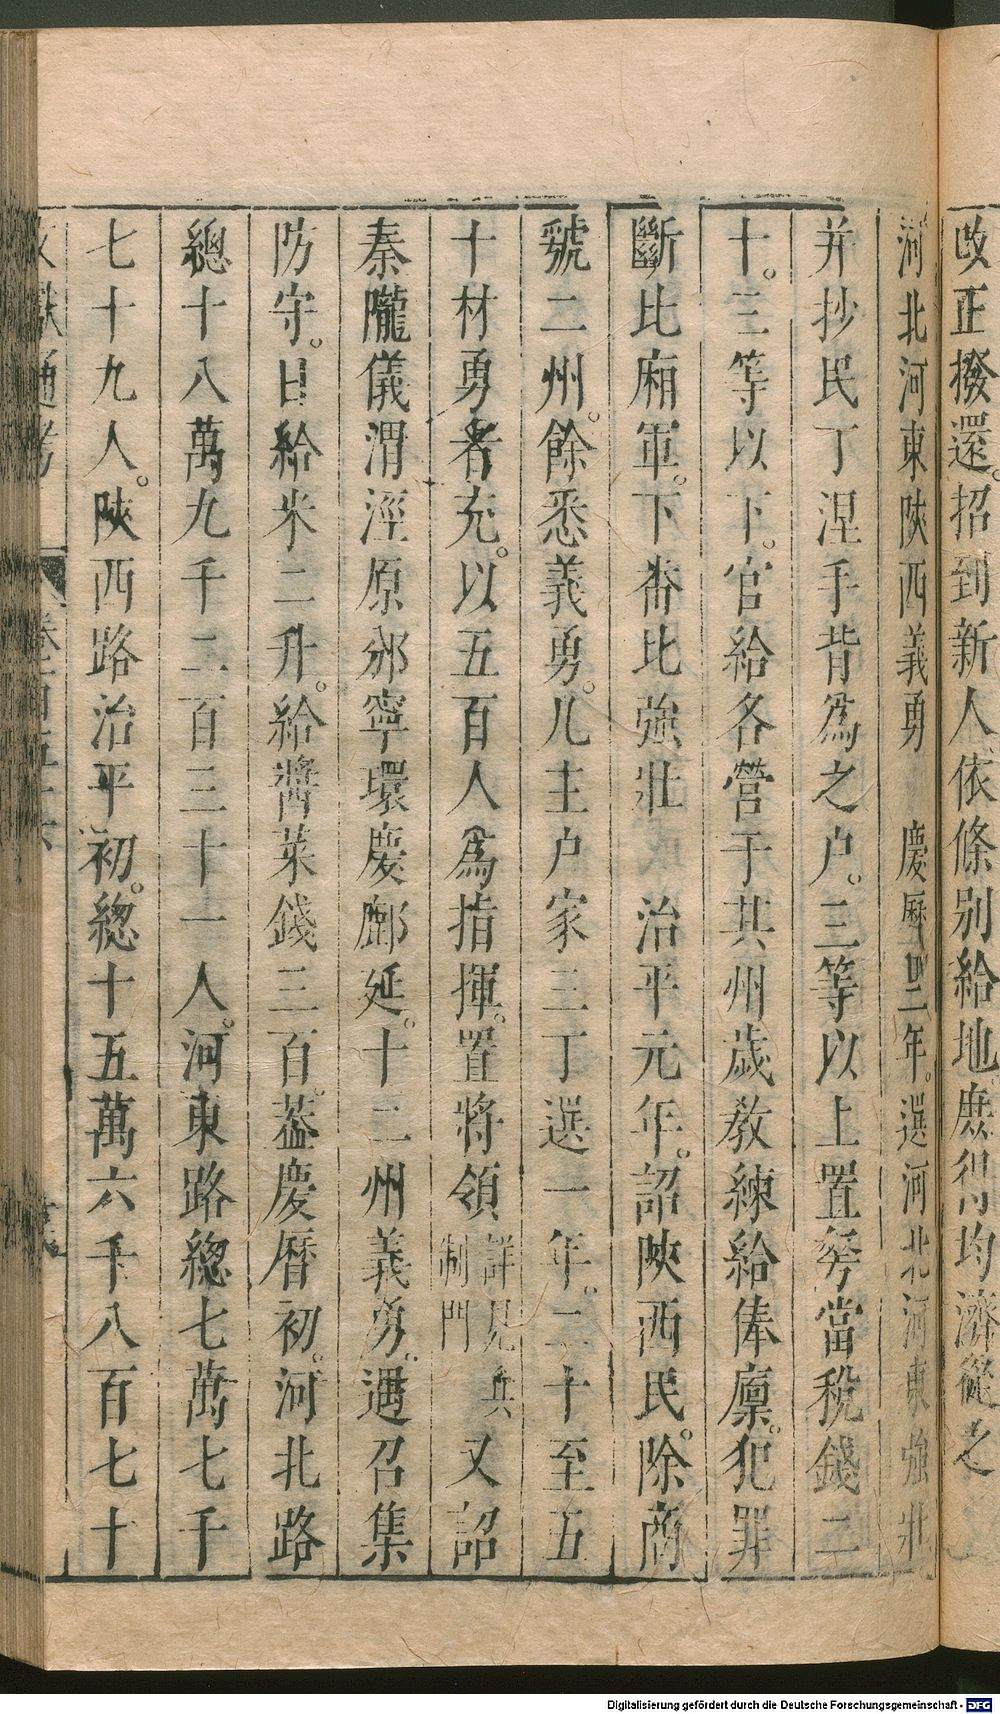 改正撥還。招到新人依條別給地。庶得均濟從之
河北河東陝西義勇 慶曆二年。選河北河東強壯
并抄民丁涅手背爲之户。三等以上置弩當稅錢二
十。三等以下。官給各營于其州歲敎練給俸廪。犯罪
斷比廂軍。下畨比強壯 治平元年。詔陝西民。除商
虢二州。餘悉義勇。凡主户家三丁選一年。二十至五
十材勇者充。以五百人爲指揮。置將領詳見兵制門 又詔
秦隴儀渭涇原邠寧環慶鄜延。十二州義勇。遇召集
防守。日給米二升。給醬菜錢三百。葢慶曆初。河北路
總十八萬九千二百三十一人。河東路總七萬七千
七十九人。陝西路治平初。總十五萬六千八百七十
文獻通考 卷一百五十六
Digitalisierung gefördert durch die Deutsche Forschungsgemeinschaft - DFG